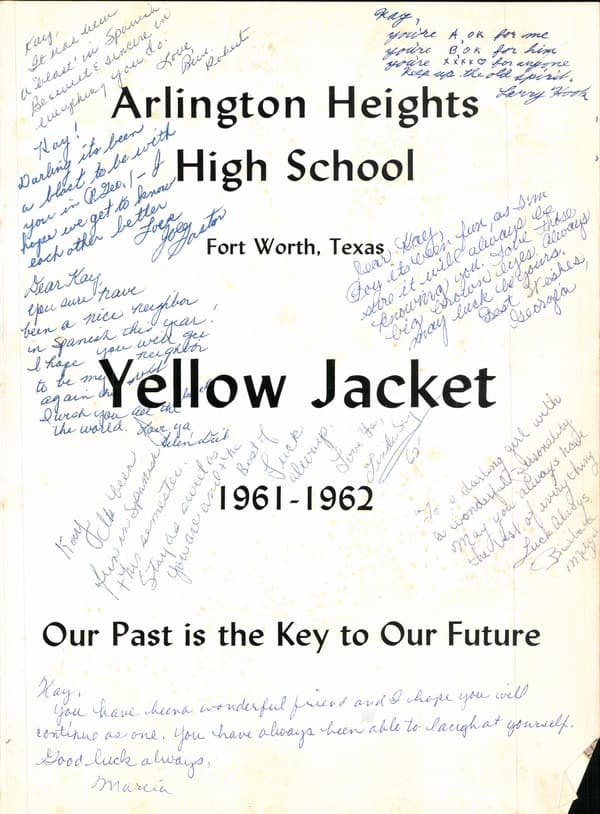 Kay,
It has been
a "blast" in Spanish
Be cute & sincere in
everything you do.
Love,
Kay,
you're A, OK for me
you're B, OK for him
you're xxxx♡ for anyone
Keep up the old spirit.
Larry Hook
Arlington Heights
High School
Fort Worth, Texas
Kay!
Darling its been
a blast to be with
you in P. Geo.! - I
hope we get to know
each other better
Love
Joey
Dear Kay,
Boy its been fun as I'm
sure it will always be
knowing you. Love those
big brown eyes. Always
may luck be yours.
Best Wishes,
Georgia
Dear Kay,
You sure have
been a nice neighbor
in Spanish this year!
I hope you will get
to be my neighbor
again
I wish you all the
the world. Love ya,
Yellow Jacket
1961-1962
Kay
It's been
fun in Spanish
this semester.
Stay as sweet as
you are and the
best of
Luck
always.
Love Ya!
62
To a darling girl with
a wonderful personality
May you always have
the best of everything
Luck Always,
Barbara
Our Past is the Key to Our Future
Kay,
You have been a wonderful friend and I hope you will
continue as one. You have always been able to laugh at yourself.
Good luck always,
Marcia